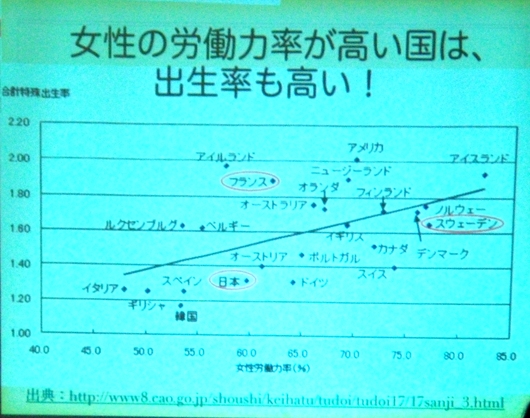 女性の労働力率が高い国は、
出生率も高い！
合計特殊出生率
2.20
2.00
1.80
1.60
1.40
1.20
1.00
アメリカ
アイルランド
アイスランド
ニュージーランド
フランス
オランダ
フィンランド
オーストラリア
ノルウェー
ルクセンブルグ
ベルギー
スウェーデン
イギリス
カナダ
デンマーク
オーストリア
ポルトガル
スイス
イタリア
スペイン
日本
ドイツ
ギリシャ
韓国
40.0 45.0 50.0 55.0 60.0 65.0 70.0 75.0 80.0 85.0
女性労働力率(%)
出典：http://www8.cao.go.jp/shoushi/keihatu/tudoi/tudoi17/17sanji_3.html